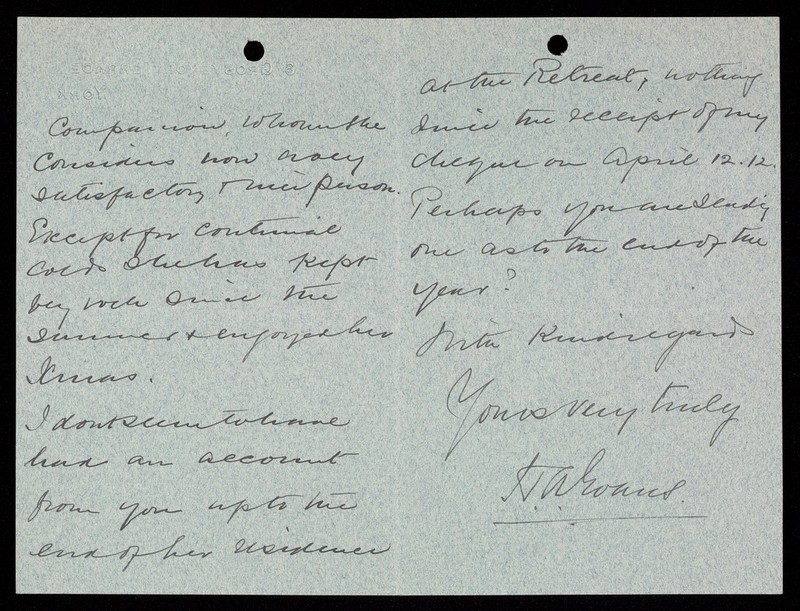 Companion, whom she
considers now a very
satisfactory & nice person.
Except for continual
colds she has kept
very well since the
summer & enjoyed her
Xmas.
I dont seem to have
had an account
from you up to the
end of her residence
at the Retreat, nothing
since the receipt of my
cheque on April 12.12.
Perhaps you are sending
one as to the end of the
year?
With Kind regards
Yours very truly
A Evans.